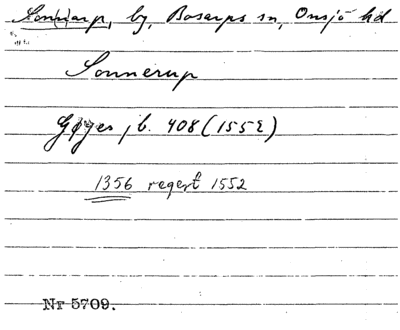 Sonnarp, by, Bosarps sn, Onsjö hd
Sonnerup
Gøyes jb. 408 (1552)
1356 regest 1552
Nr 5709.